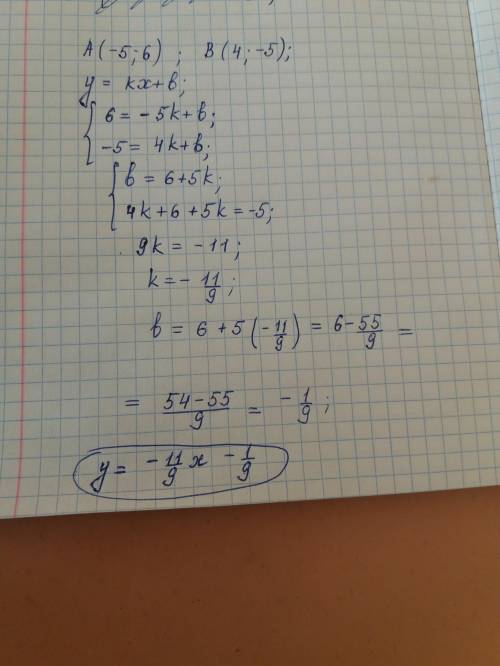 A(-5; 6) ; B(4; -5);
y = kx+b;
6 = -5k+b;
-5 = 4k+b;
b = 6+5k;
4k+6+5k=-5;
9k = -11;
k = -11/9;
b = 6+5(-11/9) = 6-55/9 =
= 54-55/9 = -1/9;
y = -11/9x -1/9